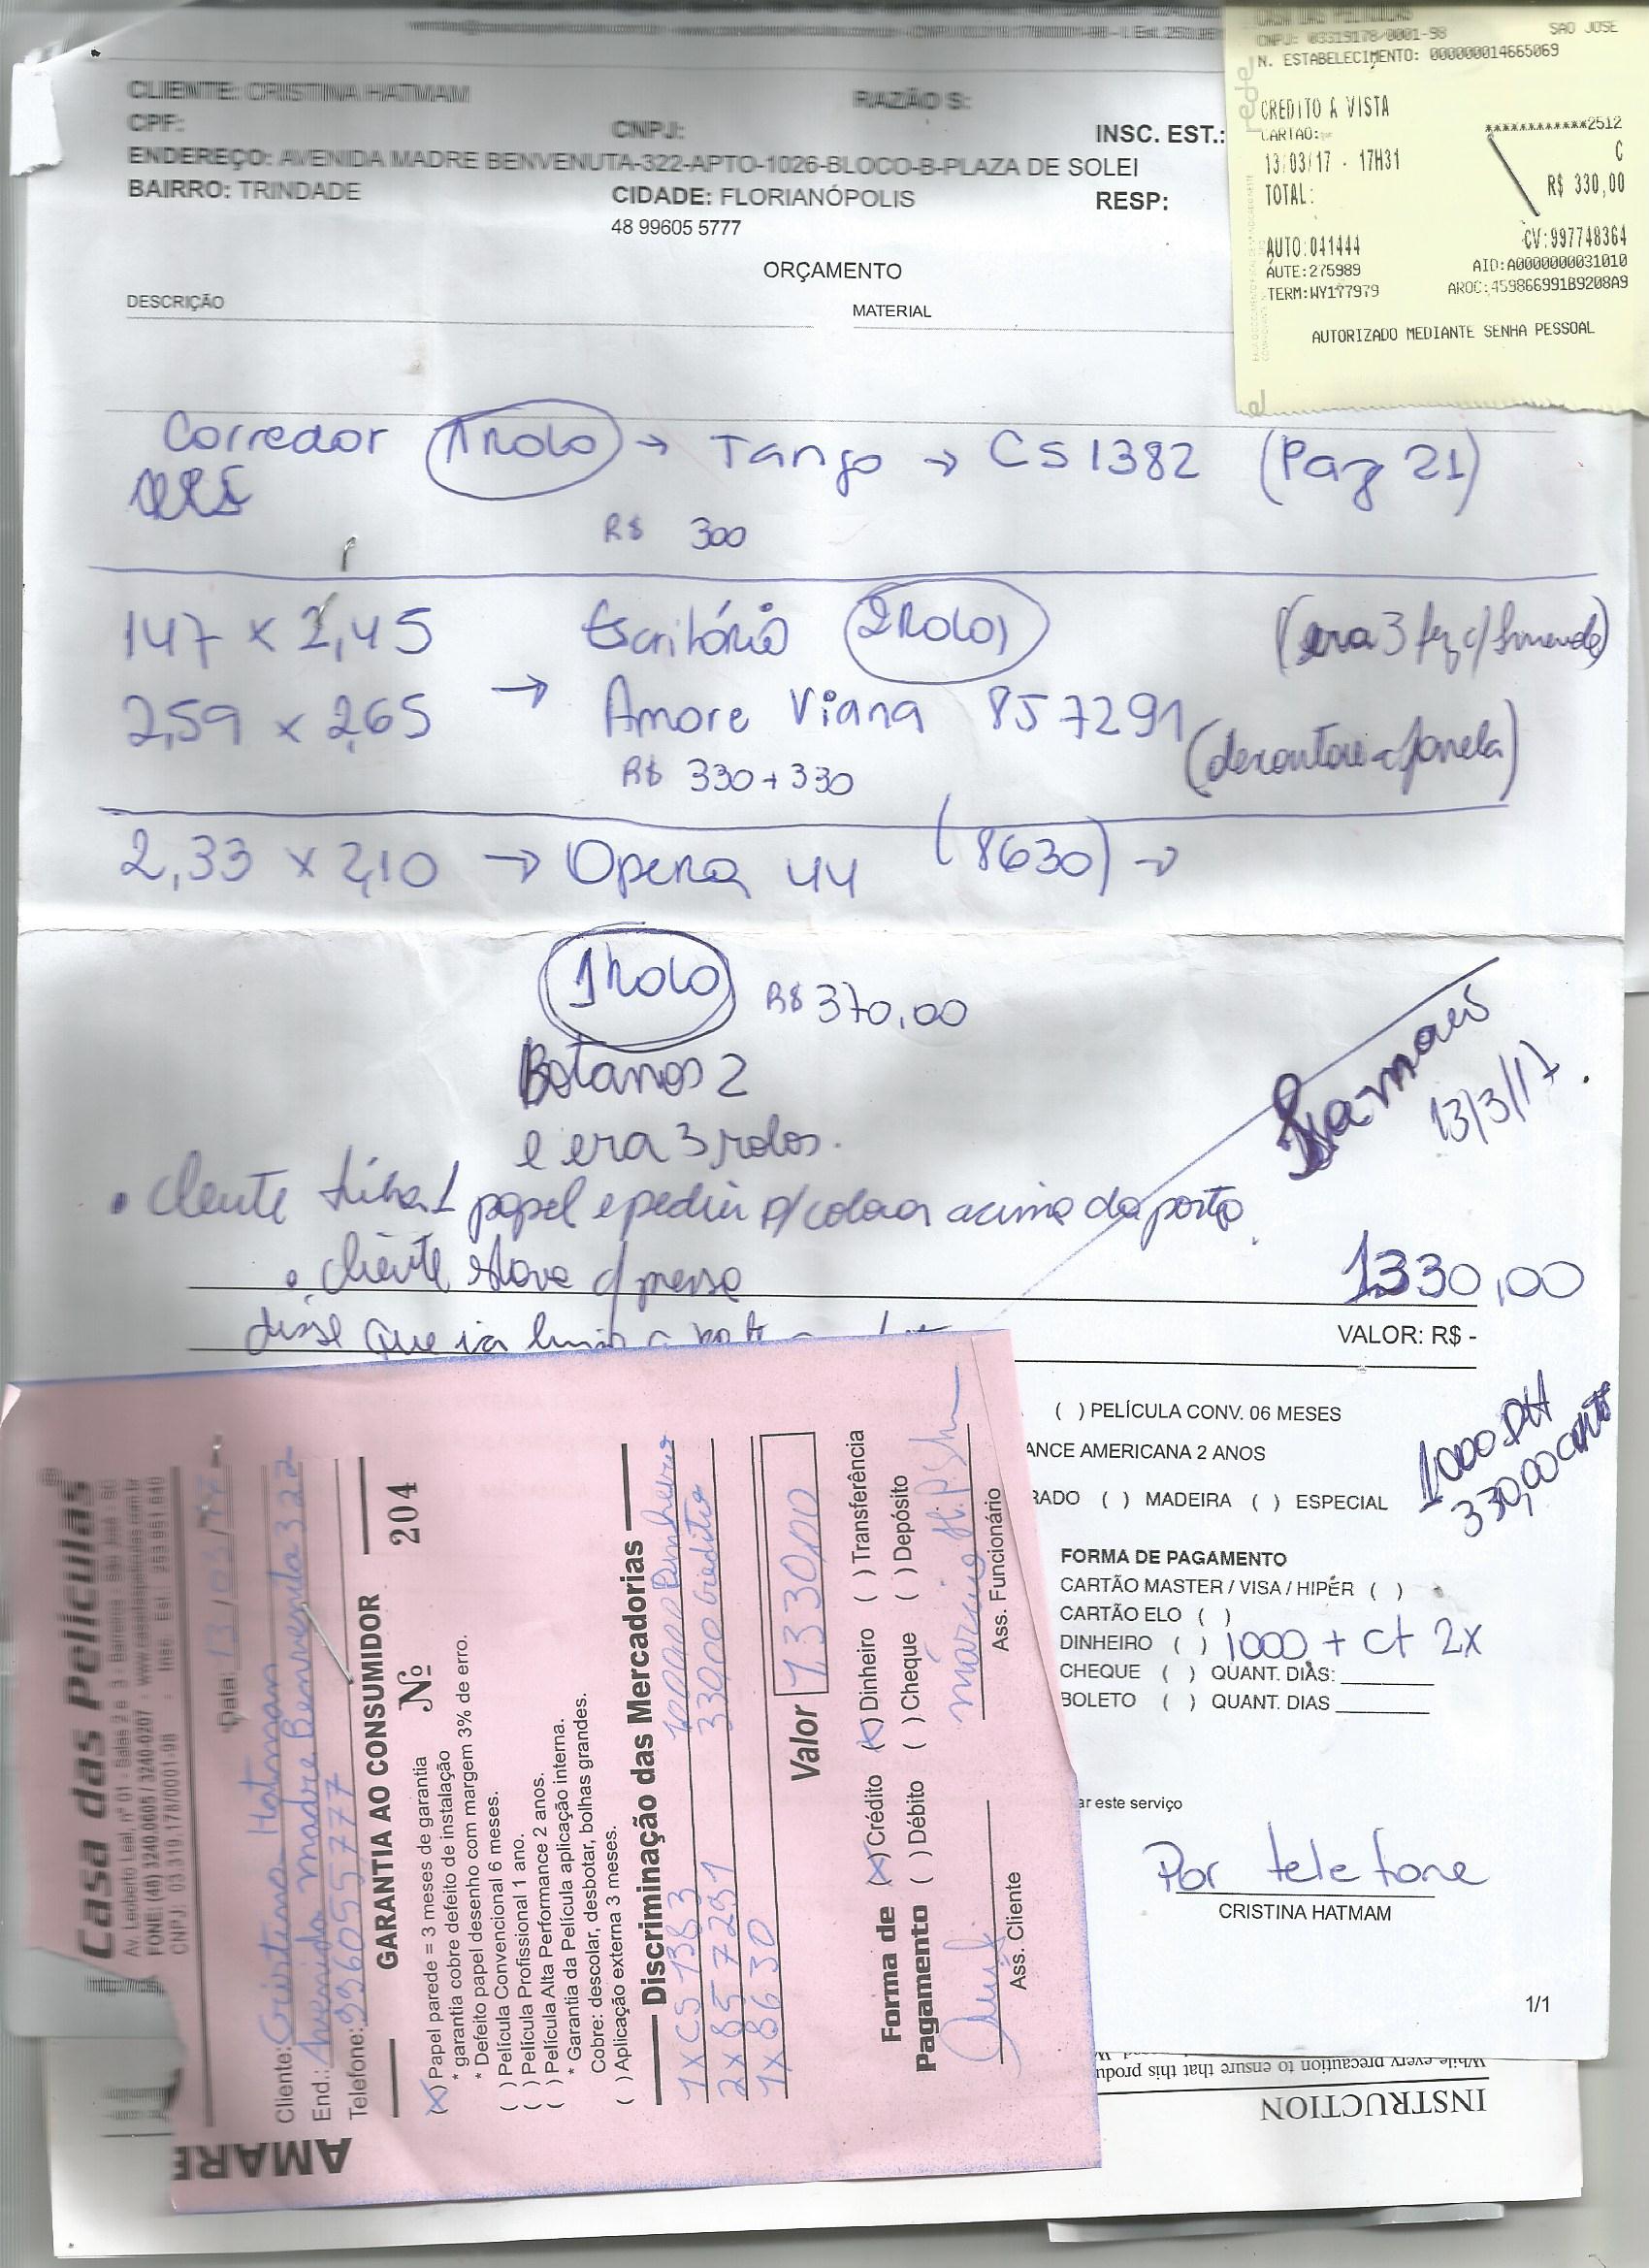 CLIENTE: CRISTINA HATMAM
RAZÃO S:
CPF:
CNPJ:
INSC. EST.:
ENDEREÇO: AVENIDA MADRE BENVENUTA-322-APTO-1026-BLOCO-B-PLAZA DE SOLEI
BAIRRO: TRINDADE
CIDADE: FLORIANÓPOLIS
RESP:
48 99605 5777
ORÇAMENTO
DESCRIÇÃO
MATERIAL
CASA DAS PELICULAS
CNPJ: 03319178/0001-98 SAO JOSE
N. ESTABELECIMENTO: 000000014665069
rede
CREDITO A VISTA
CARTAO: ************2512
C
13/03/17 - 17H31
TOTAL: R$ 330,00
AUTO:041444 CV:997748364
AUTE:275989 AID:A0000000031010
TERM:WY177979 ARQC:459866991B9208A9
AUTORIZADO MEDIANTE SENHA PESSOAL
Corredor 1 Rolo → Tango → CS 1382 (Pag 21)
R$ 300
147 x 2,45 Escritório 2 Rolos
2,59 x 2,65 → Amore Viana 857291
R$ 330 + 330
(descontou a janela)
2,33 x 2,10 → Opera 44 (8630) →
1 Rolo R$ 370,00
Botanos 2
e era 3 rolos.
13/3/17
• cliente tinha 1 papel e pediu p/ colocar acima da porta
• cliente estava c/ pressa
disse que ia
1330,00
VALOR: R$ -
( ) PELÍCULA CONV. 06 MESES
ANCE AMERICANA 2 ANOS
RADO ( ) MADEIRA ( ) ESPECIAL
1000 DH
330,00
FORMA DE PAGAMENTO
CARTÃO MASTER / VISA / HIPÉR ( )
CARTÃO ELO ( )
DINHEIRO ( ) 1000 + ct 2x
CHEQUE ( ) QUANT. DIAS:
BOLETO ( ) QUANT. DIAS
ar este serviço
Por telefone
CRISTINA HATMAM
1/1
Casa das Películas®
Av. Leoberto Leal, nº 01 - Salas 2 e 3 - Barreiros - São José - SC
FONE: (48) 3240.0605 / 3240.0207
CNPJ: 03.319.178/0001-98
Data: 13/03/17
Cliente: Cristina Hatman
End.: Avenida madre Benvenuta 322
Telefone: 996055777
GARANTIA AO CONSUMIDOR
Nº 204
(X) Papel parede = 3 meses de garantia
* garantia cobre defeito de instalação
* Defeito papel desenho com margem 3% de erro.
( ) Película Convencional 6 meses.
( ) Película Profissional 1 ano.
( ) Película Alta Performance 2 anos.
* Garantia da Película aplicação interna.
Cobre: descolar, desbotar, bolhas grandes.
( ) Aplicação externa 3 meses.
Discriminação das Mercadorias
1 x CS 1383 1000,00 Dinheiro
2 x 857291 330,00 Credito
1 x 8630
Valor 1.330,00
Forma de Pagamento
(X) Crédito (X) Dinheiro ( ) Transferência
( ) Débito ( ) Cheque ( ) Depósito
Ass. Cliente
Ass. Funcionário
AMARE
INSTRUCTION
While every precaution to ensure that this produ